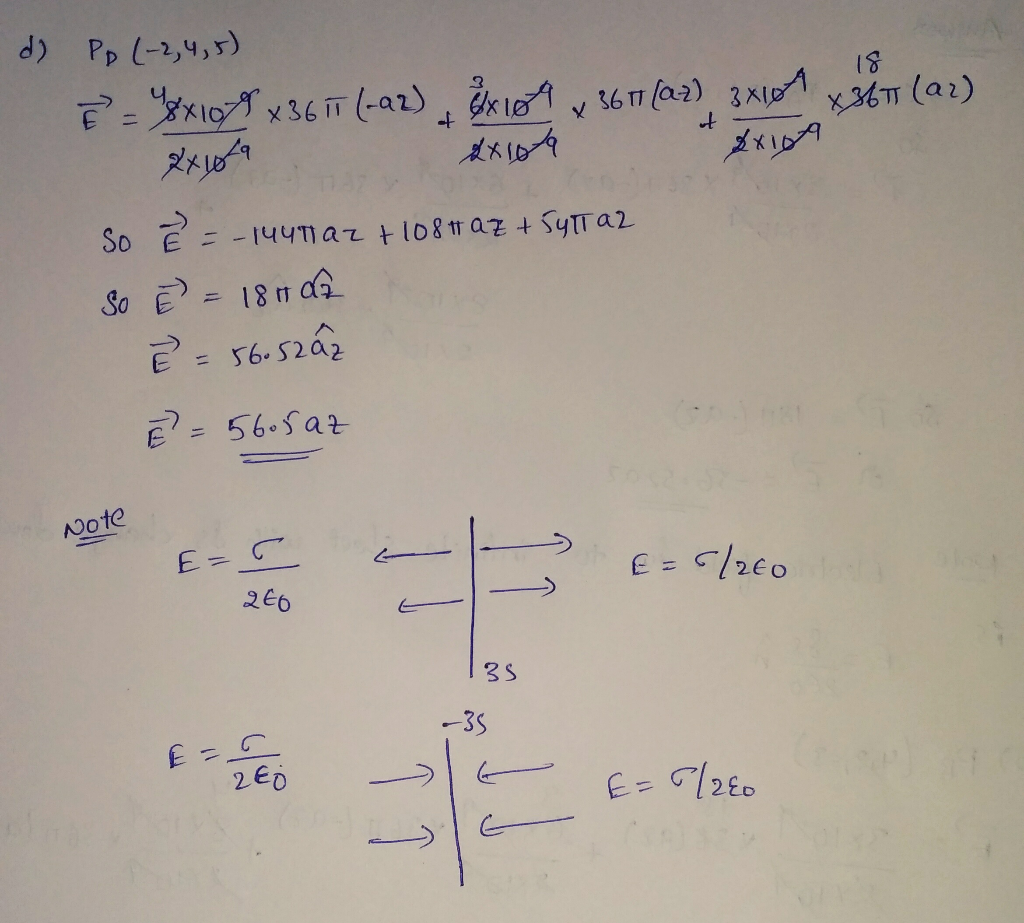 d) P_D (-2,4,5)
E⃗ = 8×10⁻⁹/2×10⁻⁹ × 36π (-az) + 6×10⁻⁹/2×10⁻⁹ × 36π (az) + 3×10⁻⁹/2×10⁻⁹ × 36π (az)
4 3 18
So E⃗ = -144πaz + 108πaz + 54πaz
So E⃗ = 18π âz
E⃗ = 56.52âz
E⃗ = 56.5az
Note
E = σ/2ϵ0 E = σ/2ϵ0
3S
-3S
E = σ/2ϵ0 E = σ/2ε0